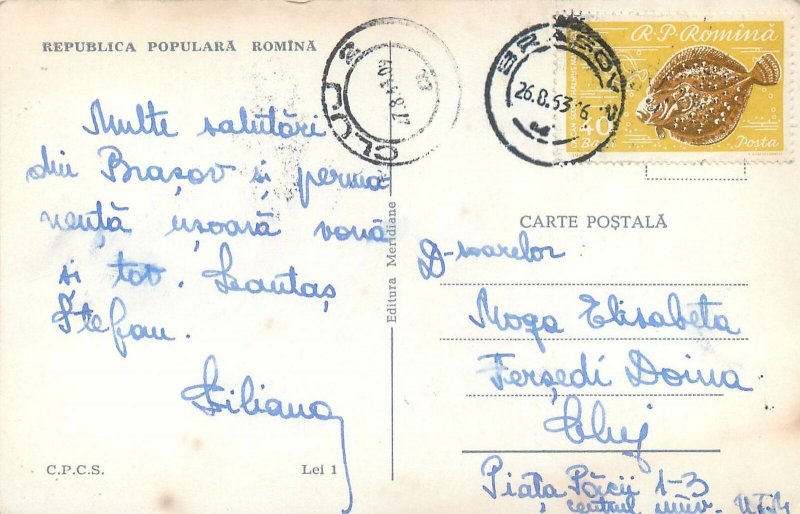 REPUBLICA POPULARĂ ROMÎNĂ
Multe salutări
din Brașov și perma
nență ușoară vouă
și tov. Leontaș
Ștefan.
Liliana
C.P.C.S.
Lei 1
Editura Meridiane
CLUJ
BRAȘOV
26.8.63
R.P. Romînă
40
Bani
Posta
CARTE POȘTALĂ
D-șoarelor
Moga Elisabeta
Ferședi Doina
Cluj
Piața Păcii 1-3
centrul univ. U.T.M